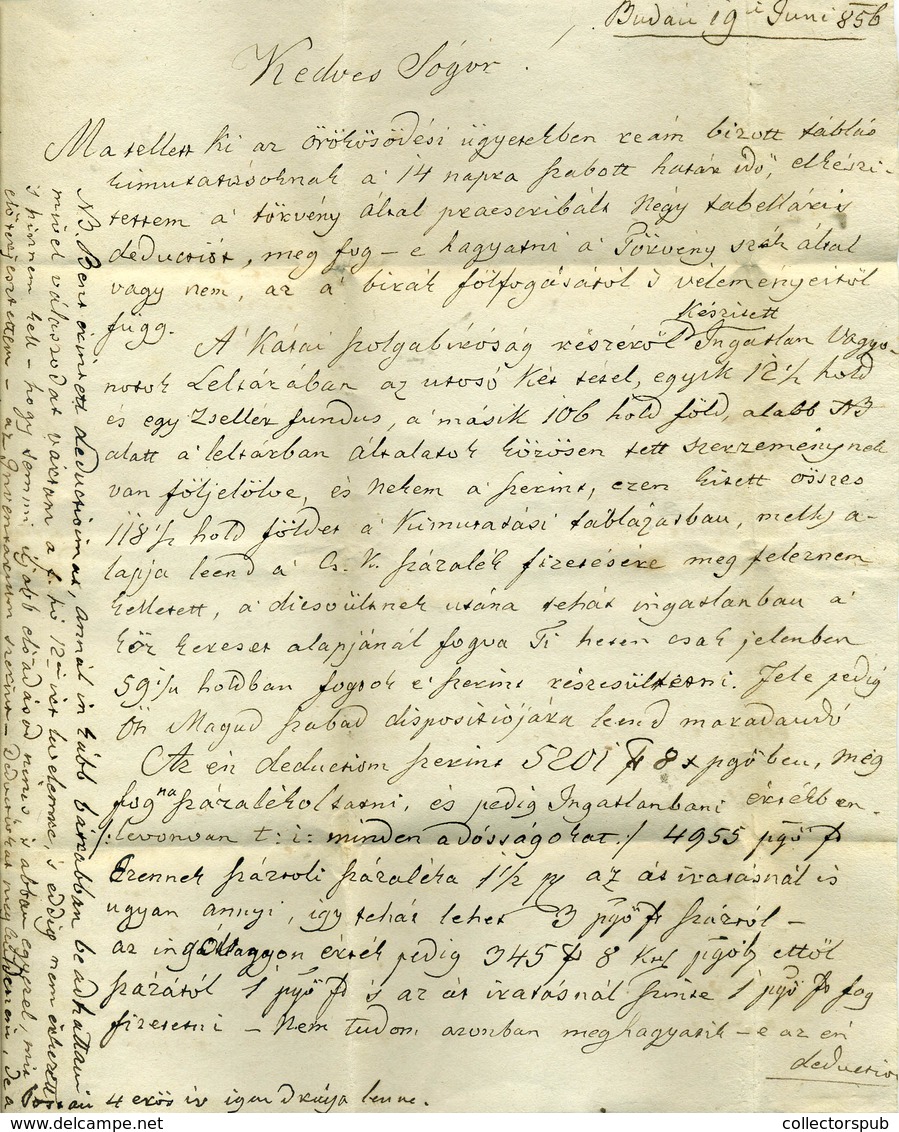 Budán 19i Juni 856
Kedves Sógor.
Ma tellett ki az Örökösödési ügyetekben reám bizott táblás
kimutatásoknak a' 14 napra szabott határ idő, elkészi-
tettem a' törvény által praescribált Négy tabelláris
deductiót, meg fog-e hagyatni a' Törvény szék által
vagy nem, az a' birák fölfogásától 's véleményeitől
függ.
Készitett
A' Kátai szolgabiróság részéről Ingatlan Vagyo-
notok Leltárában az utosó Két tetel, egyik 12 1/2 hold
és egy Zsellér fundus, a' másik 106 hold föld, alább NB
alatt a' leltárban általatok közösen tett szerzeménynek
van följelölve, és Nekem a' szerint, ezen kitett összes
118 1/2 hold földet a' Kimutatási táblázatban, melly a-
lapja leend a' százalék fizetésére meg feleznem
kelletett, a' dicsőültnek utána tehát ingatlanban a'
köz kereset alapjánál fogva Ti heten csak jelenben
59 1/4 holdban fogtok e' szerint részesültetni. Fele pedig
Ön Magad szabad dispositiójára leend maradandó
Az én deductiom szerint 5201 f 8 x pgőben, meg
fogna százalékoltatni, és pedig Ingatlanbani értékben
/:levonván t: i: minden adósságokat:/ 4955 pgő f
Ezennek száztoli százaléka 1 1/2 p az át iratásnál is
ugyan annyi, így tehát lehet 3 pgő f száztól –
az ingó vagyon érték pedig 345 f 8 Kr pgőb ettől
százától 1 pgő f is az át iratásnál szinte 1 pgő f fog
fizetetni – Nem tudom azonban meghagyatik-e az én
deductio
4 erős ív igen drága lenne.
NB. Bent érintett deductiomat, annál in kább bátrabban be adhattam
mivel válaszodat vártam a f. hó 12én tett levelemre, 's eddig nem érkezett
's hinnem kell – hogy semmi újabb előadásod nincs is abban egyezel, mit
előterjesztettem – az Inventarium szerint – Deductiokat meg kell tennem, de a
collectorspub